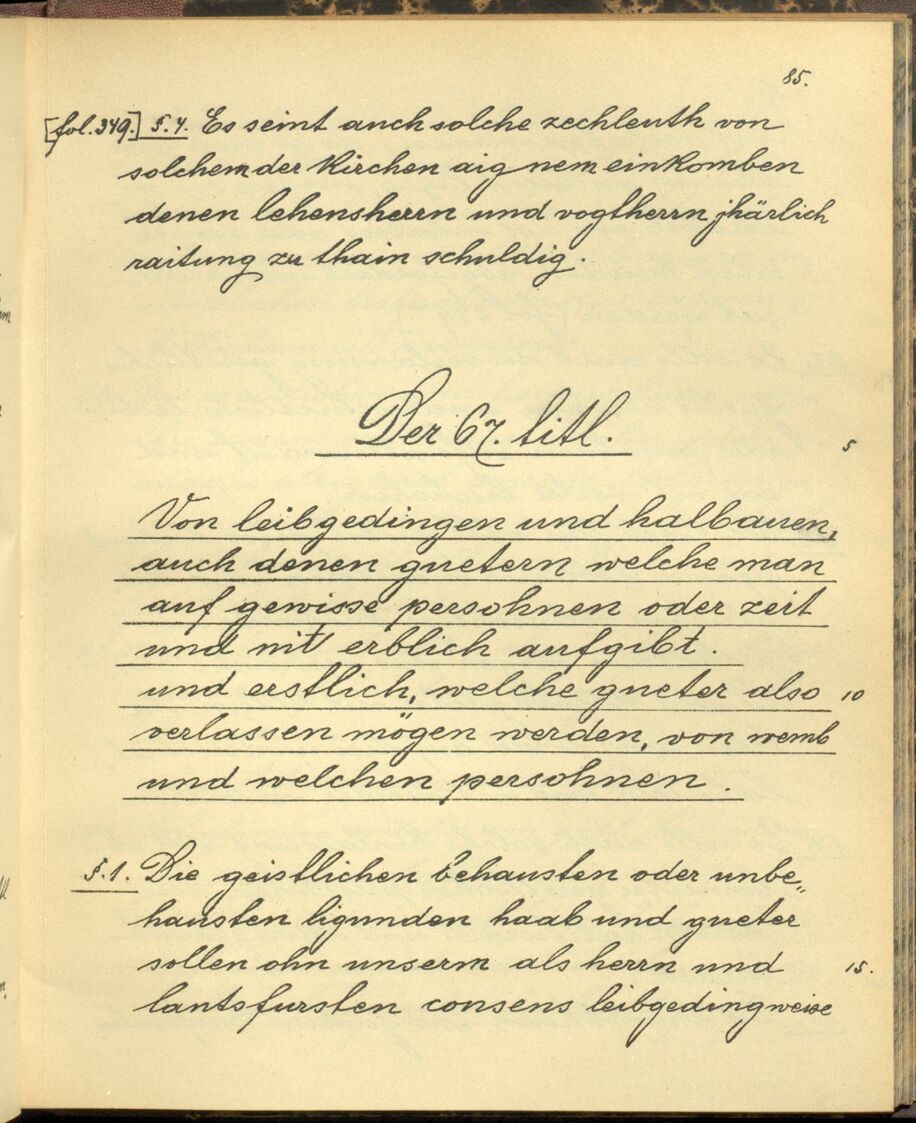 85.
[fol. 349.] §. 4. Es seint auch solche zechleuth von
solchem der Kirchen aig nem einkomben
denen lehensherrn und vogtherrn jhärlich
raitung zu thain schuldig.
Der 67. titl.
5
Von leibgedingen und halbauen,
auch denen guetern welche man
auf gewisse persohnen oder zeit
und nit erblich aufgibt.
und erstlich, welche gueter also 10
verlassen mögen werden, von wemb
und welchen persohnen.
§. 1. Die geistlichen behausten oder unbe„
hausten ligunden haab und gueter
sollen ohn unserm als herrn und 15.
lantsfursten consens leibgedingweise